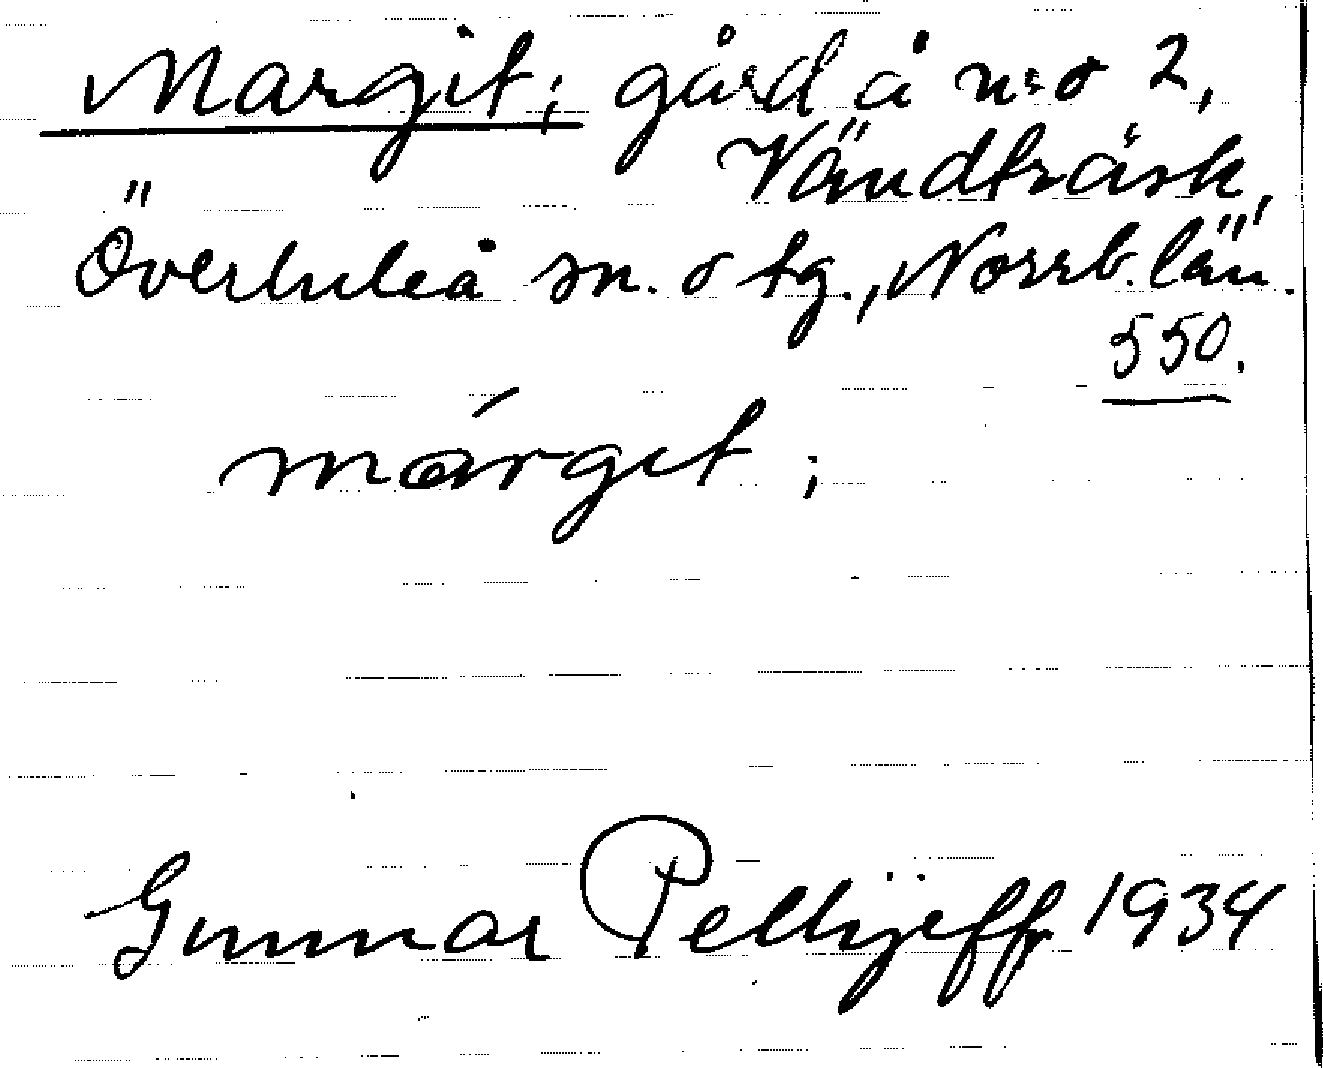 Margit; gård å n:o 2,
Vändträsk,
Överluleå sn. o tg., Norrb. län.
550.
márgit;
Gunnar Pellijeff 1934